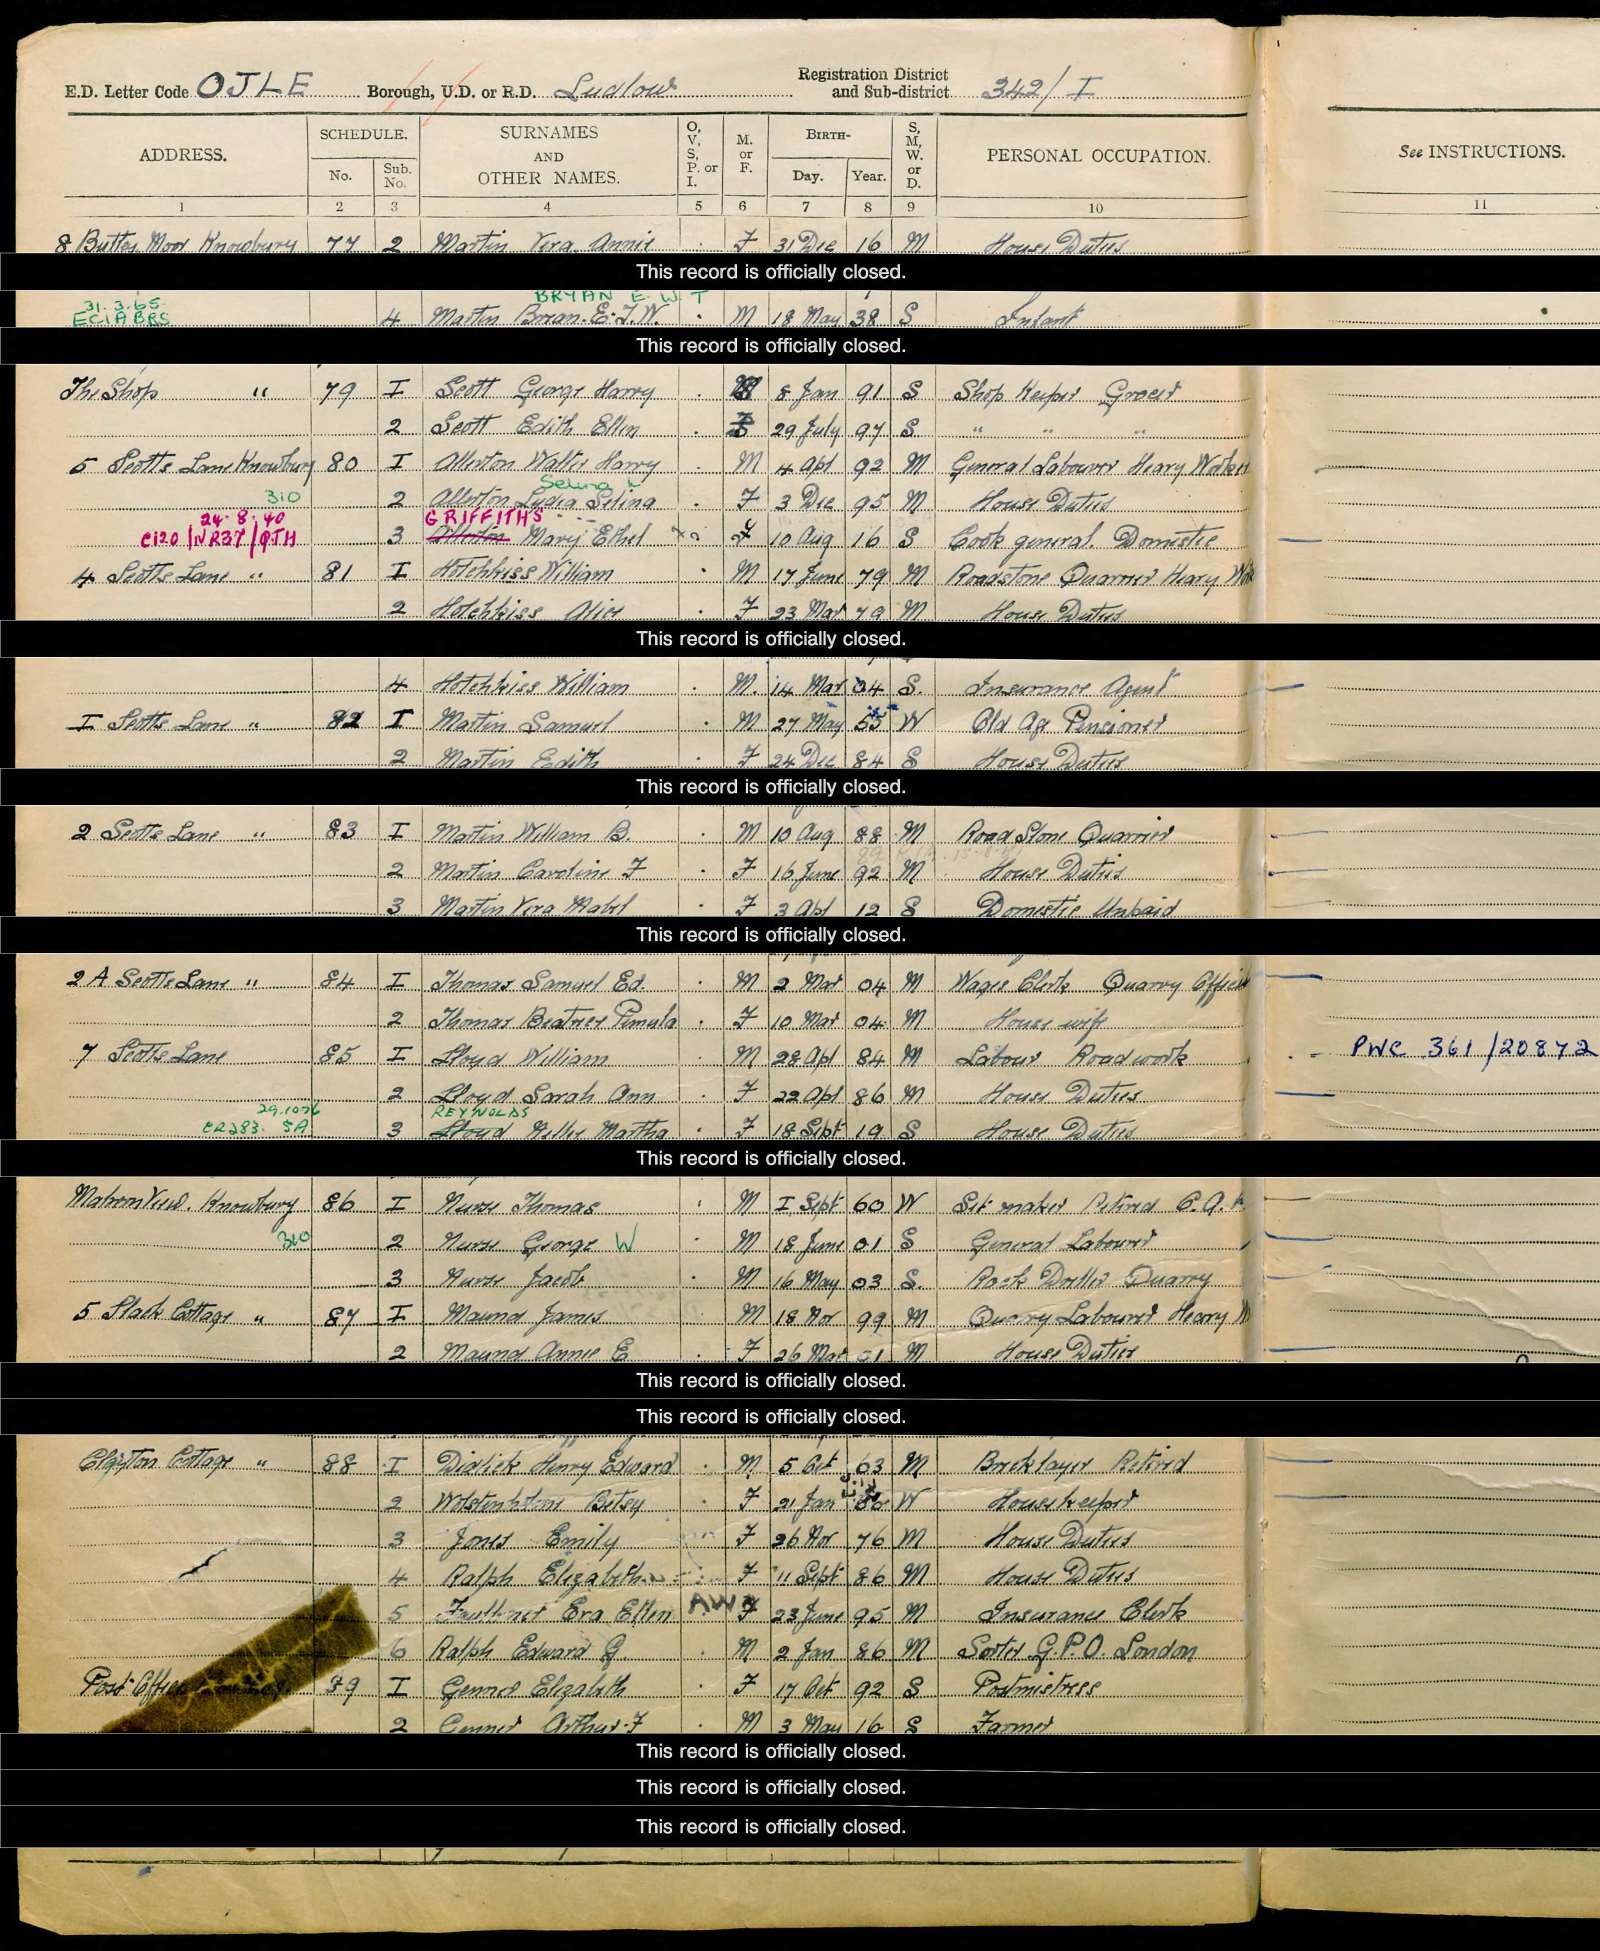 E.D. Letter Code OJLE Borough, U.D. or R.D. Ludlow Registration District and Sub-district 342/I
ADDRESS. SCHEDULE. No. Sub. No. SURNAMES AND OTHER NAMES. O, V, S, P. or I. M. or F. BIRTH- Day. Year. S, M, W. or D. PERSONAL OCCUPATION. See INSTRUCTIONS.
1 2 3 4 5 6 7 8 9 10 11
8 Moor Knowbury 77 2 Martin Vera Annie F 31 Dec 16 M House Duties
This record is officially closed.
31.3.65 BRYAN E W T
ECIA BRS 4 Martin Brian E. T. W. M 18 May 38 S Infant
This record is officially closed.
The Shop " 79 I Scott George Harry M 8 Jan 91 S Shop Keeper Grocer
2 Scott Edith Ellen F 29 July 97 S " " "
5 Scotts Lane Knowbury 80 I Allerton Walter Harry M 4 Apl 92 M General Labourer Heavy Worker
Selina L
310 2 Allerton Lydia Selina F 3 Dec 95 M House Duties
24.8.40 GRIFFITHS
C120 / NR37 / OTH 3 Allerton Mary Ethel F 10 Aug 16 S Cook general Domestic
4 Scotts Lane " 81 I Hotchkiss William M 17 June 79 M Roadstone Quarrier Heavy Work
2 Hotchkiss Alice F 23 Mar 79 M House Duties
This record is officially closed.
4 Hotchkiss William M. 14 Mar 04 S. Insurance Agent
I Scotts Lane " 82 I Martin Samuel M 27 May 55 W Old Age Pensioner
2 Martin Edith F 24 Dec 84 S House Duties
This record is officially closed.
2 Scotts Lane " 83 I Martin William B. M 10 Aug 88 M Road Stone Quarrier
2 Martin Caroline F F 16 June 92 M House Duties
3 Martin Vera Mabel F 3 Apl 12 S Domestic Unpaid
This record is officially closed.
2 A Scotts Lane " 84 I Thomas Samuel Ed. M 2 Mar 04 M Wages Clerk Quarry Office
2 Thomas Beatrice F 10 Mar 04 M House wife
7 Scotts Lane 85 I Lloyd William M 28 Apl 84 M Labour Roadwork PWC 361/20872
2 Lloyd Sarah Ann F 22 Apl 86 M House Duties
29.10.76 REYNOLDS
CR283. SA 3 Lloyd Nellie Martha F 18 Sept 19 S House Duties
This record is officially closed.
View. Knowbury 86 I Nurse Thomas M I Sept 60 W Set maker Retired
310 2 Nurse George W M 18 June 01 S General Labourer
3 Nurse Jacob M 16 May 03 S. Rock Driller Quarry
5 Slack Cottage " 87 I Maund James M 18 Nov 99 M Quarry Labourer Heavy
2 Maund Annie E F 26 Mar 01 M House Duties
This record is officially closed.
This record is officially closed.
Clayton Cottage " 88 I Didlick Henry Edward M 5 Oct 63 M Bricklayer Retired
2 Betsy F 21 Jan W Housekeeper
3 Jones Emily F 26 Nov 76 M House Duties
4 Ralph Elizabeth F 11 Sept 86 M House Duties
5 Eva Ellen AW F 23 June 95 M Insurance Clerk
6 Ralph Edward G M 2 Jan 86 M Sorter G.P.O. London
Post Office 89 I Genner Elizabeth F 17 Oct 92 S Postmistress
2 Genner Arthur F M 3 May 16 S Farmer
This record is officially closed.
This record is officially closed.
This record is officially closed.